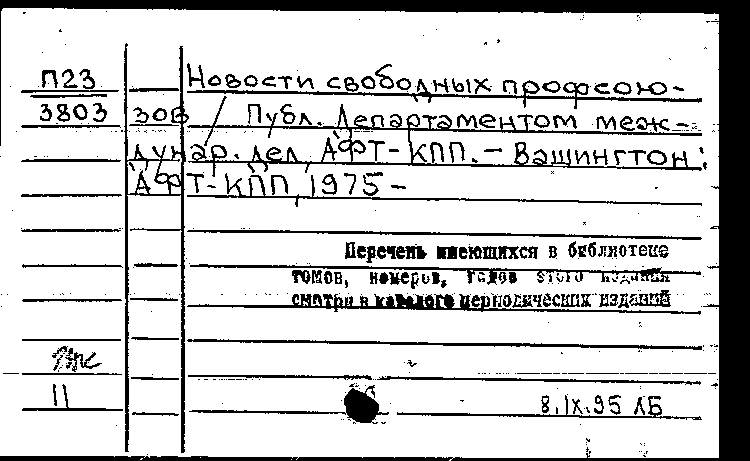 П23 Новости свободных профсою-
3803 зов / Публ. Департаментом меж-
дунар. дел, АФТ-КПП. - Вашингтон:
АФТ-КПП, 1975 -
Перечень имеющихся в библиотеке
томов, номеров, годов этого издания
смотри в каталоге периодических изданий
11
8.IX.95 ЛБ